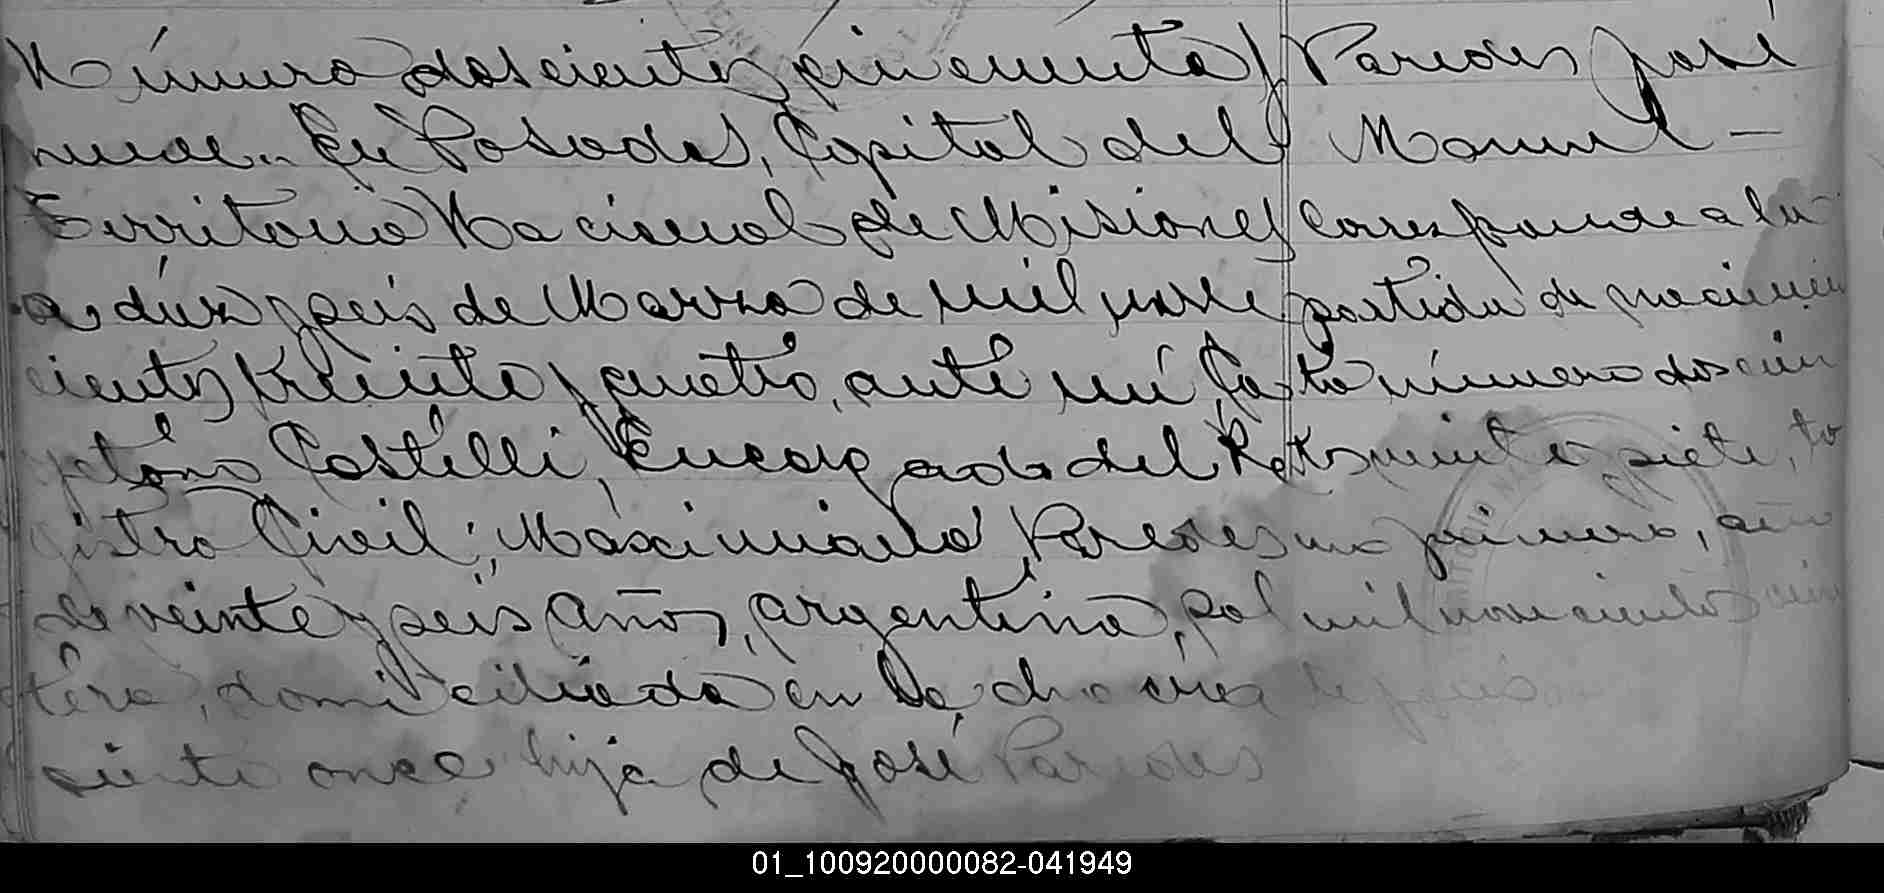 Número doscientos cincuenta y
nueve.. En Posadas, Capital del
Territorio Nacional de Misiones
a diez y seis de Marzo de mil nove
cientos treinta y cuatro, ante mí, Ca
yetano Castelli, Encargado del Re
gistro Civil; Macsimiana Paredes
de veinte y seis años, argentina, sol
tera, domiciliada en la chacra
ciento once hija de José Paredes
Paredes José
Manuel —
Corresponde a la
partida de nacimien
to número doscien
tos veinte y siete, to
mo primero, año
mil novecientos
01_100920000082-041949